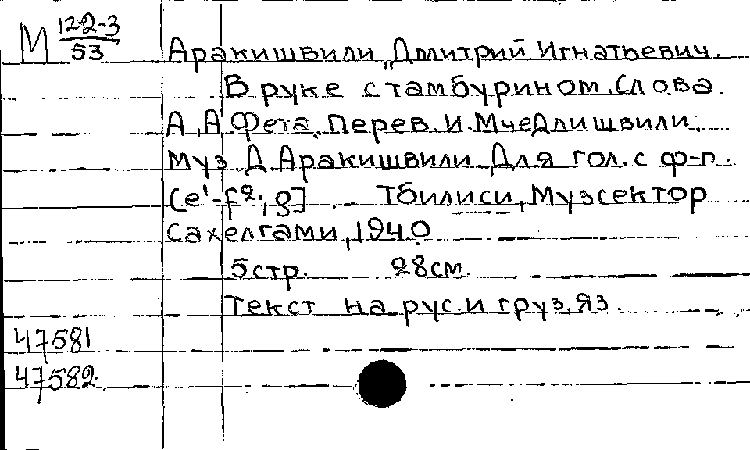 М 12-2-3
53
Аракишвили, Дмитрий Игнатьевич.
В руке с тамбурином. Слова
А.А Фета. Перев. И. Мчедлишвили.
Муз Д. Аракишвили. Для гол. с ф-п.
[e¹-f²; g] Тбилиси, Музсектор
Сахелгами, 1940
5 стр. 28 см.
Текст на рус. и груз. яз.
47581
47582.